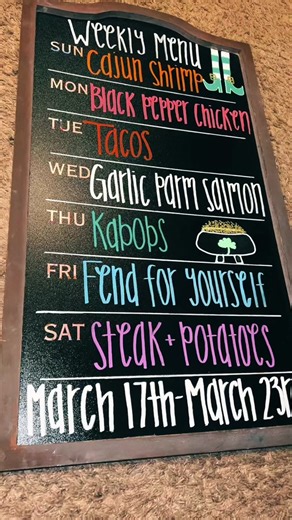 Weekly Menu
SUN Cajun Shrimp
MON Black Pepper Chicken
TUE Tacos
WED Garlic Parm Salmon
THU Kabobs
FRI Fend for yourself
SAT Steak + Potatoes
March 17th-March 23r